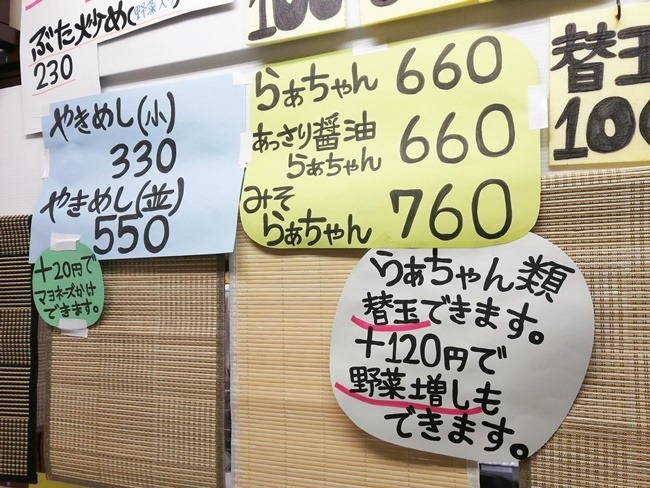 ぶた炒め(野菜入り
230
100
やきめし(小)
330
やきめし(並)
550
+20円で
マヨネーズかけ
できます。
らぁちゃん 660
あっさり醤油
らぁちゃん 660
みそ
らぁちゃん 760
替玉
100
らぁちゃん類
替玉できます。
+120円で
野菜増しも
できます。